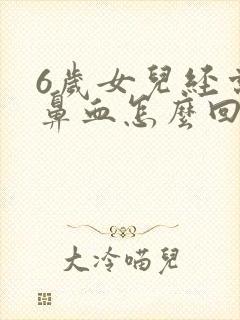 6歲女兒經
鼻血怎麼回
大冷喵兒